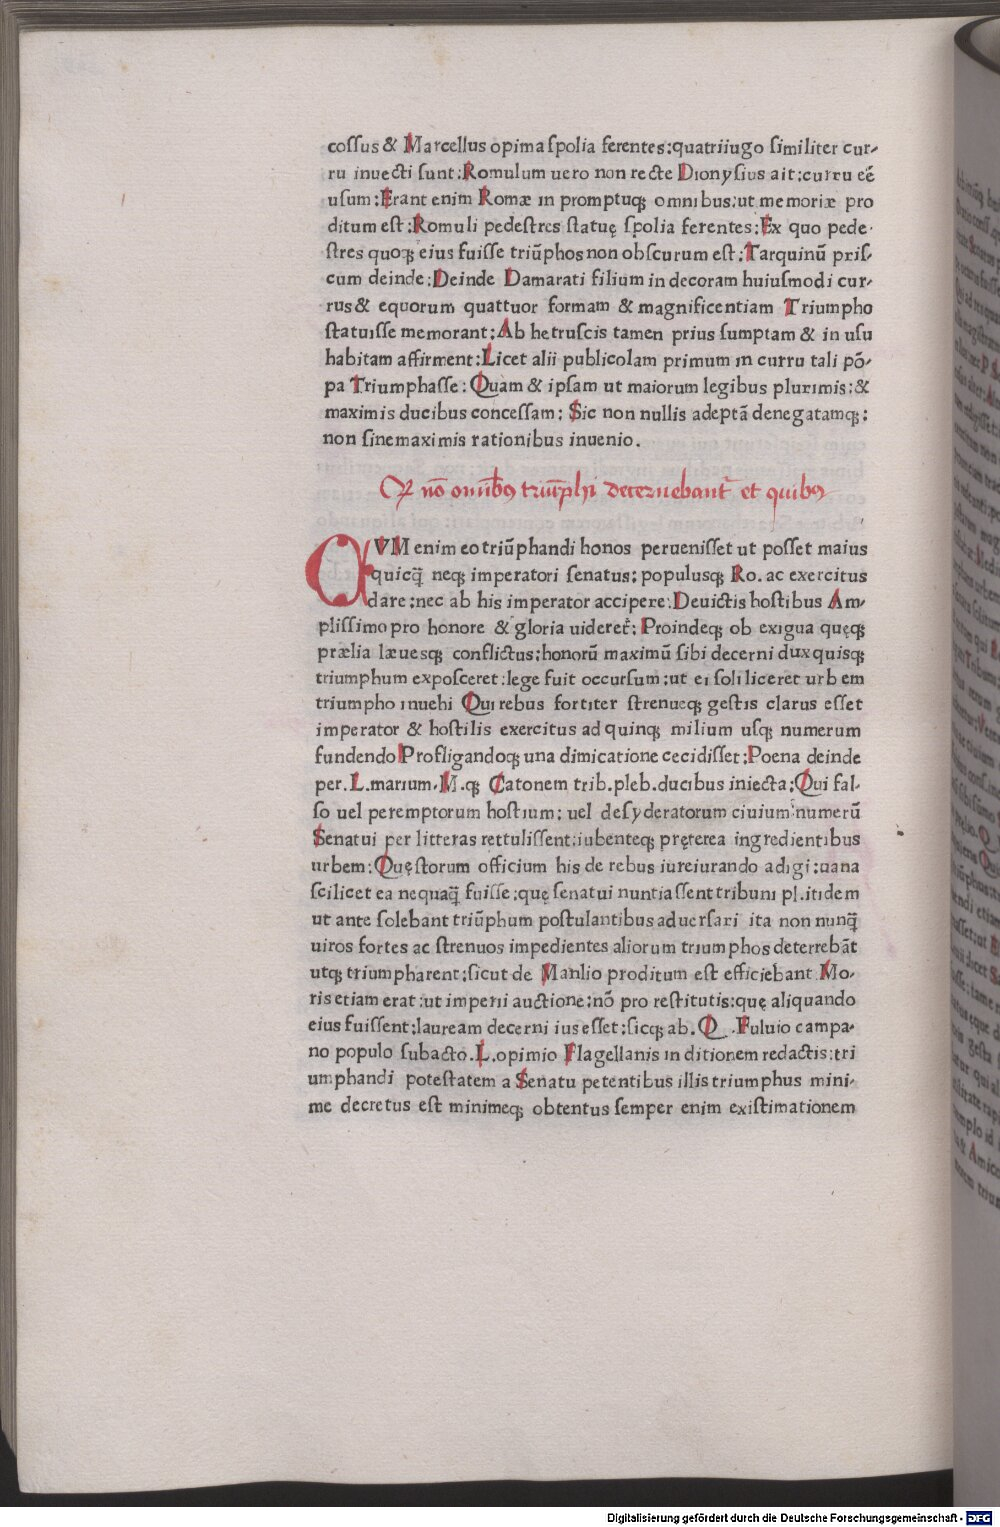 cossus & Marcellus opima spolia ferentes:quatriiugo similiter cur-
ru inuecti sunt:Romulum uero non recte Dionysius ait:curru eē
usum:Erant enim Romæ in promptuqꝫ omnibus:ut memoriæ pro
ditum est:Romuli pedestres statuę spolia ferentes:Ex quo pede-
stres quoqꝫ eius fuisse triūphos non obscurum est:Tarquinū pris-
cum deinde:Deinde Damarati filium in decoram huiusmodi cur-
rus & equorum quattuor formam & magnificentiam Triumpho
statuisse memorant:Ab hetruscis tamen prius sumptam & in usu
habitam affirment:Licet alii publicolam primum in curru tali pō-
pa Triumphasse:Quam & ipsam ut maiorum legibus plurimis:&
maximis ducibus concessam:Sic non nullis adeptā denegatamqꝫ:
non sine maximis rationibus inuenio.
nō omībꝰ triūphi decernebanť et quibꝰ
CVM enim eo triūphandi honos peruenisset ut posset maius
quicq̄ neqꝫ imperatori senatus:populusqꝫ Ro. ac exercitus
dare:nec ab his imperator accipere:Deuictis hostibus Am-
plissimo pro honore & gloria uidereť:Proindeqꝫ ob exigua quęqꝫ
prælia læuesqꝫ conflictus:honorū maximū sibi decerni dux quisqꝫ
triumphum exposceret:lege fuit occursum:ut ei soli liceret urbem
triumpho inuehi Qui rebus fortiter strenueqꝫ gestis clarus esset
imperator & hostilis exercitus ad quinqꝫ milium usqꝫ numerum
fundendo Profligandoqꝫ una dimicatione cecidisset:Poena deinde
per.L.marium.M.qꝫ Catonem trib.pleb.ducibus iniecta:Qui fal-
so uel peremptorum hostium:uel desyderatorum ciuium numerū
Senatui per litteras rettulissent:iubenteqꝫ pręterea ingredientibus
urbem:Quęstorum officium his de rebus iureiurando adigi:uana
scilicet ea nequaq̄ fuisse:quę senatui nuntiassent tribuni pl.itidem
ut ante solebant triūphum postulantibus aduersari ita non nunq̄
uiros fortes ac strenuos impedientes aliorum triumphos deterrebāt
utqꝫ triumpharent:sicut de Manlio proditum est efficiebant Mo-
ris etiam erat:ut imperii auctione:nō pro restitutis:quę aliquando
eius fuissent:lauream decerni ius esset:sicqꝫ ab.Q.Fuluio campa-
no populo subacto.L.opimio Flagellanis in ditionem redactis:tri
umphandi potestatem a Senatu petentibus illis triumphus mini-
me decretus est minimeqꝫ obtentus semper enim existimationem
Digitalisierung gefördert durch die Deutsche Forschungsgemeinschaft - DFG